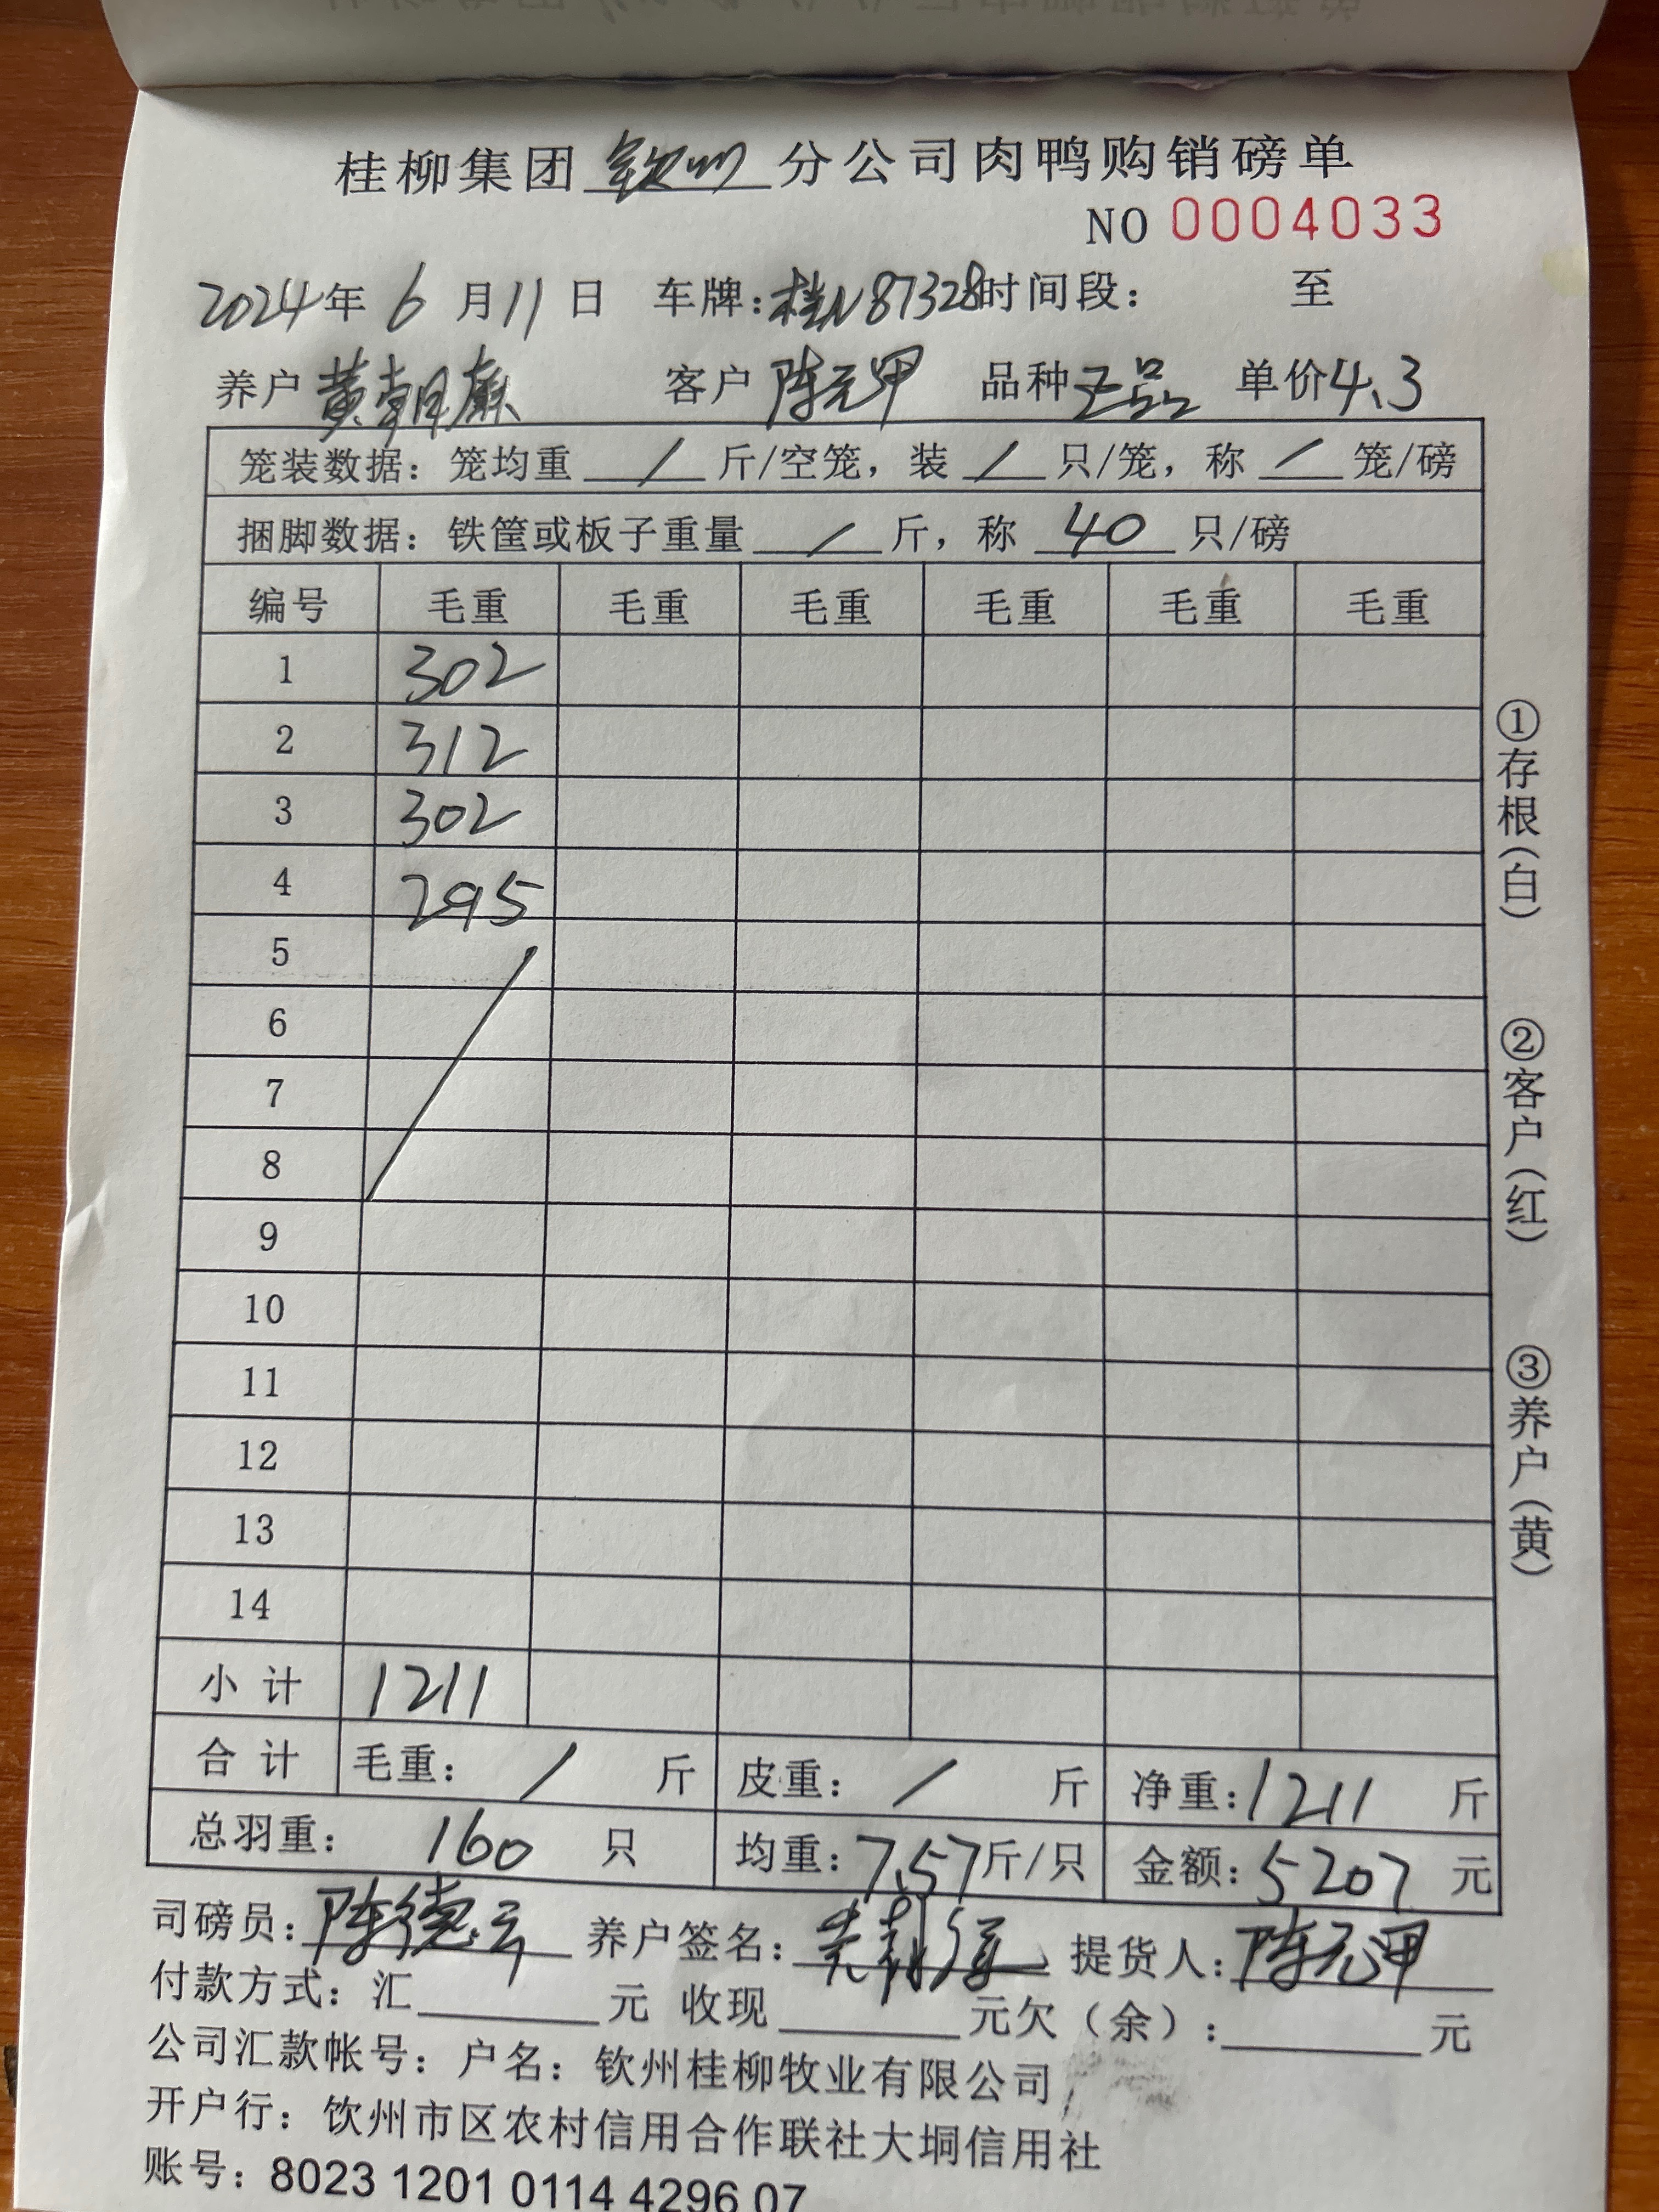 桂柳集团 钦州 分公司肉鸭购销磅单
NO 0004033
2024年 6 月 11 日 车牌:桂N87328 时间段: 至
养户 黄朝 客户 陈元甲 品种 正品 单价 4.3
笼装数据:笼均重 / 斤/空笼,装 / 只/笼,称 / 笼/磅
捆脚数据:铁筐或板子重量 / 斤,称 40 只/磅
编号 毛重 毛重 毛重 毛重 毛重 毛重
1 302
2 312
3 302
4 295
5
6
7
8
9
10
11
12
13
14
小计 1211
合计 毛重: / 斤 皮重: / 斤 净重:1211 斤
总羽重: 160 只 均重:7.57斤/只 金额:5207 元
司磅员:陈德云 养户签名: 提货人:陈元甲
付款方式:汇 元 收现 元欠(余): 元
公司汇款帐号:户名:钦州桂柳牧业有限公司
开户行:钦州市区农村信用合作联社大垌信用社
账号:8023 1201 0114 4296 07
①存根(白) ②客户(红) ③养户(黄)